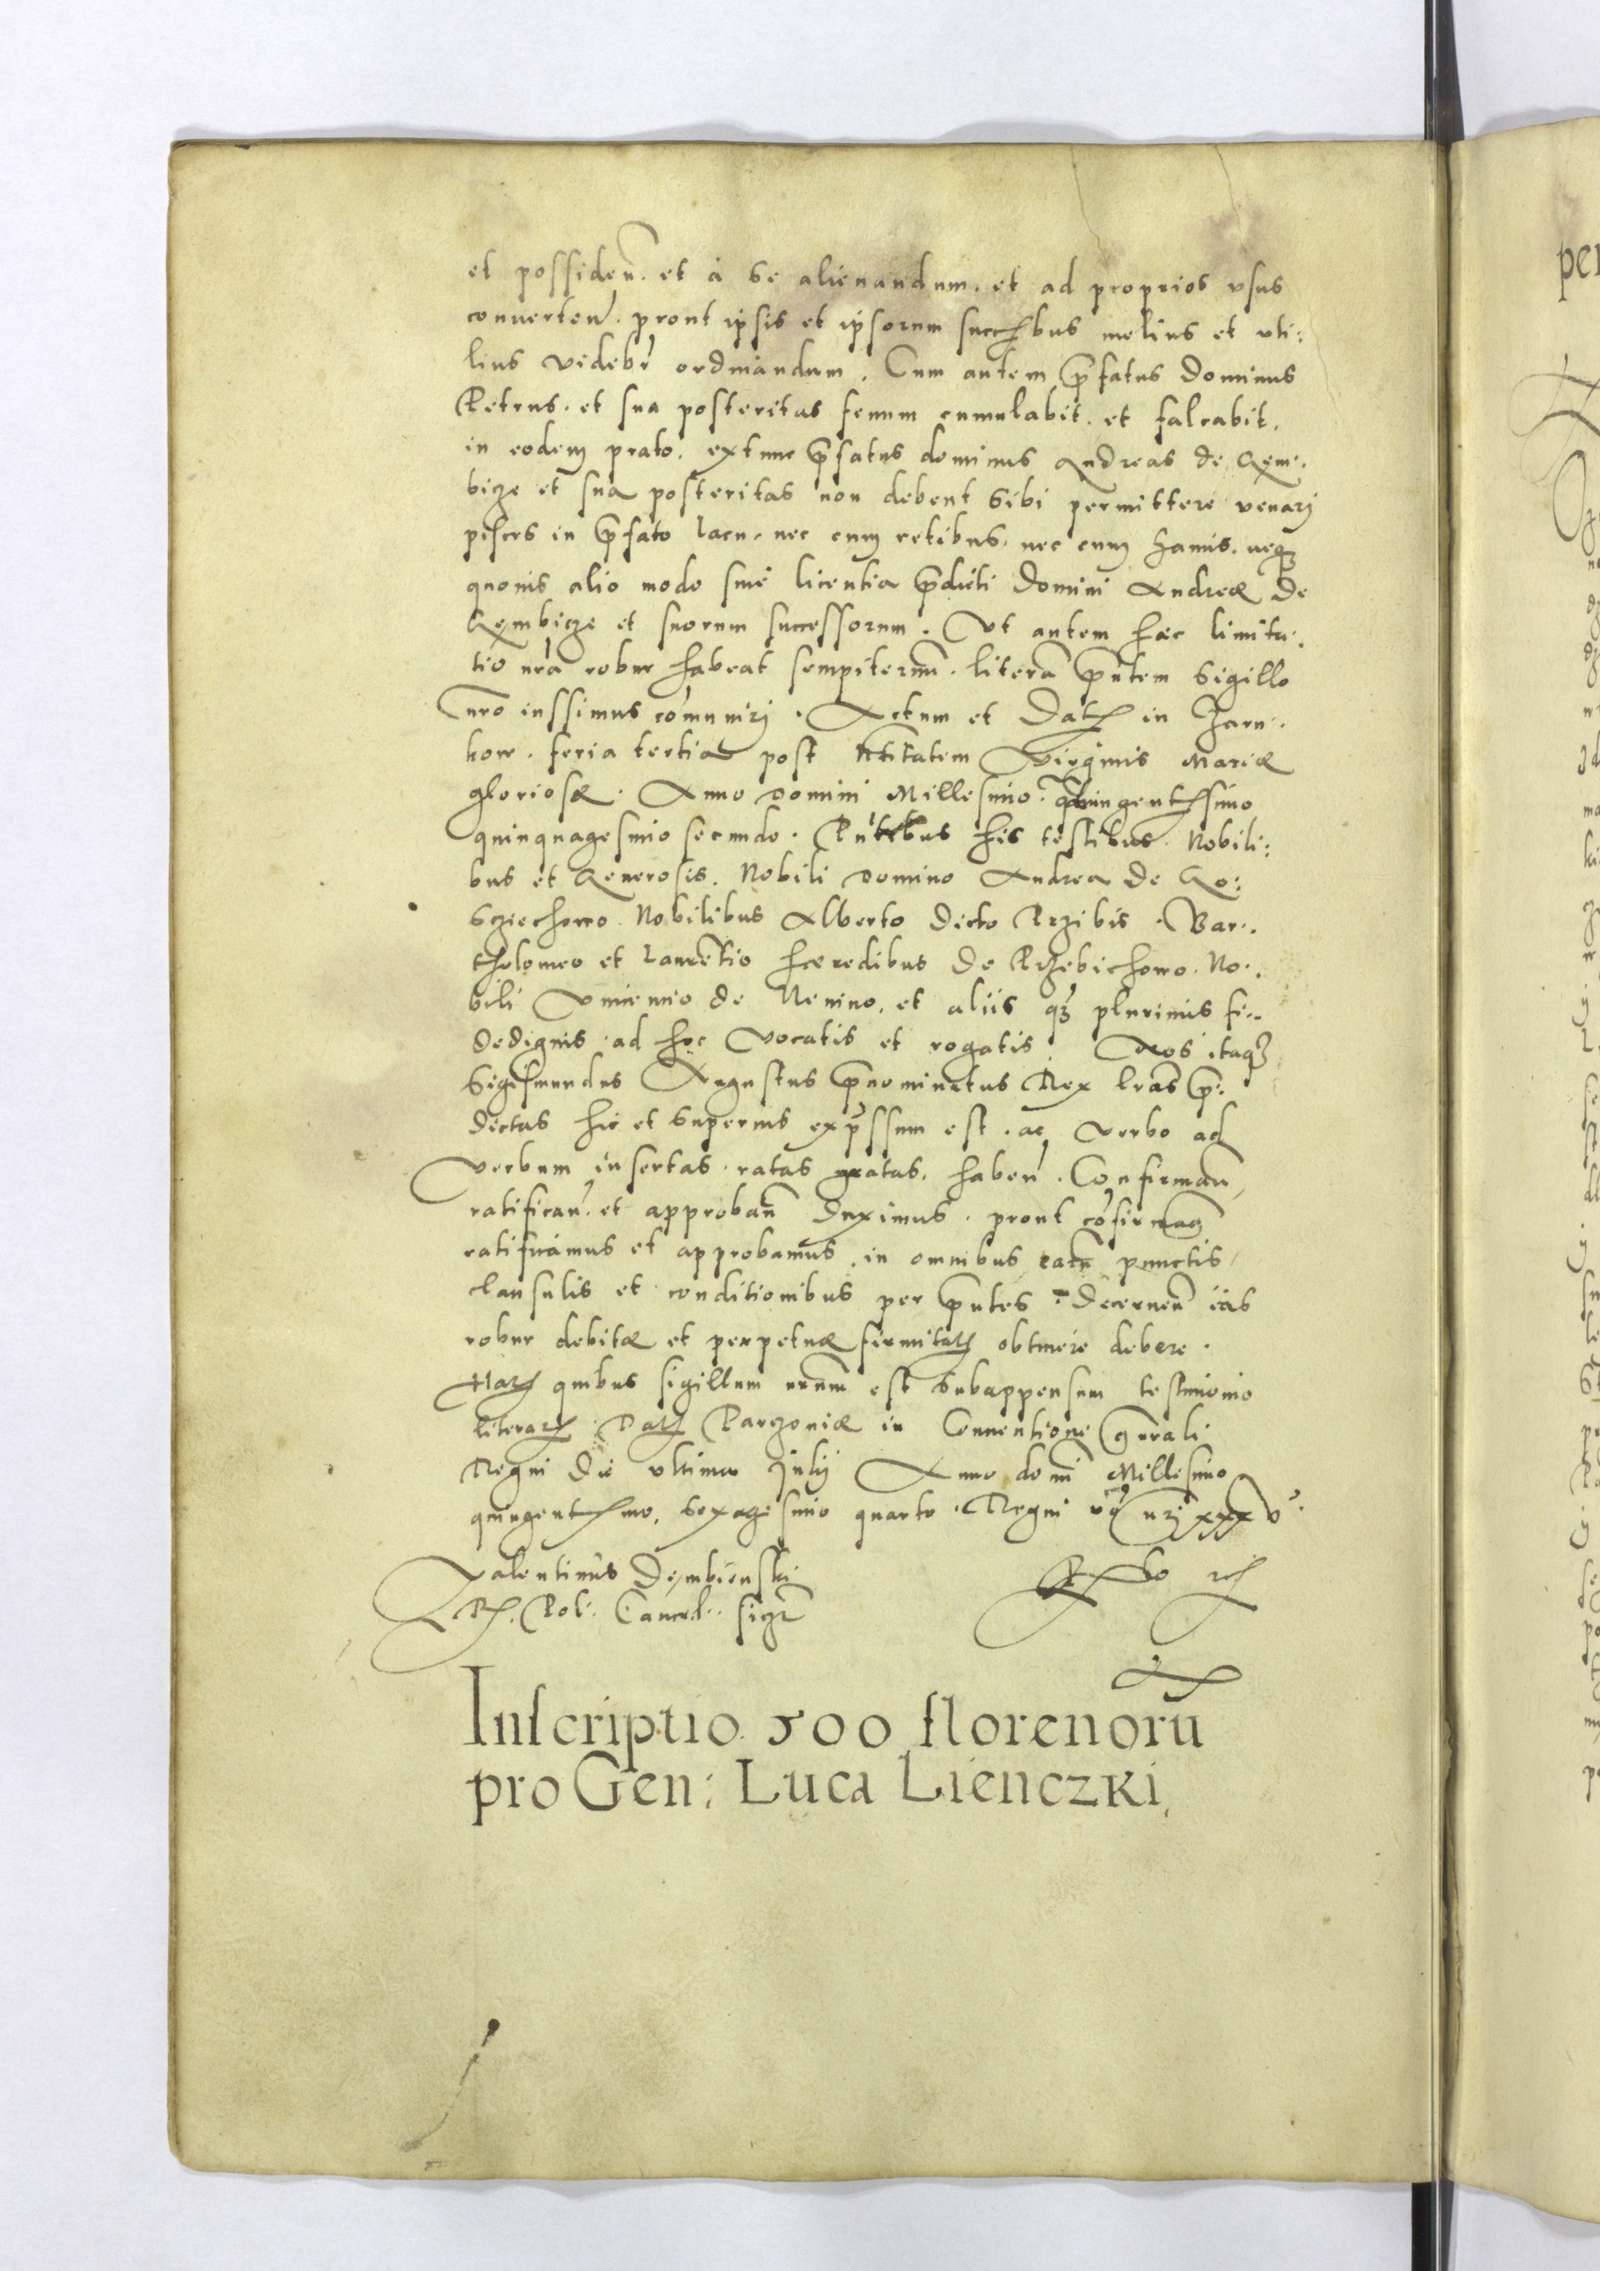 et possideñ. et à se alienandum. et ad proprios vsus
conuerteñ. prout ipsis et ipsorum succ̄bus melius et vti:
lius videbr̃ ordinandum. Cum autem p̄fatus Dominus
Petrus. et sua posteritas fenum cumulabit. et falcabit.
in eodem prato. extunc p̄fatus dominus Andreas de Gem:
bicze et sua posteritas non debent sibi permittere venarj
pisces in p̄fato lacu. nec cum retibus. nec cum hamis. neq₃
quouis alio modo sine licentia p̄dicti Domini Andreæ de
Gembicze et suorum successorum. Vt autem hæc limita:
tio nr̃a robur habeat sempiternũ. literã p̄ntem sigillo
nr̃o iussimus cõmunirj. Actum et Datꝝ in Zarn:
kow. feria tertia post Ntitatem Virginis Mariæ
gloriosæ. Anno Domini Millesimo. quingentꝭsimo
quinquagesimo secundo. Pñtibus his testibus. Nobili:
bus et Generosis. Nobili Domino Andrea de Go:
scziechowo. Nobilibus Alberto dicto Przibis. Bar:
tholomeo et Laurẽtio hæredibus de Przebichowo. No:
bili de Nenino. et aliis q₃ plurimis fi:
dedignis ad hoc vocatis et rogatis. Nos itaq₃
Sigismundus Augustus p̄nominatus Rex lr̃as p̄:
dictas hic et superius exp̃ssum est. ac verbo ad
verbum insertas. ratas gratas. habeñ. Confirmañ
ratificañ. et approbañ duximus. prout cõfirmam₉
ratificamus et approbamus. in omnibus eaꝝ punctis
clausulis et conditionibus per p̄ntes. Decerneñ eas
robur debitæ et perpetuæ firmitatꝭ obtinere debere.
Haꝝ quibus sigillum nrũm est subappensum testimonio
literaꝝ. Datꝝ Parczouiæ in Conuentione gñrali
Regni die vltima Julij Anno domi Millesimo
quingentꝭmo. sexagesimo quarto. Regni vo nrj xxxv.
Valentinus Dembienskj
R. Pol. Cancel. sigt̃
Inscriptio 500 florenorũ
pro Gen: Luca Lienczki